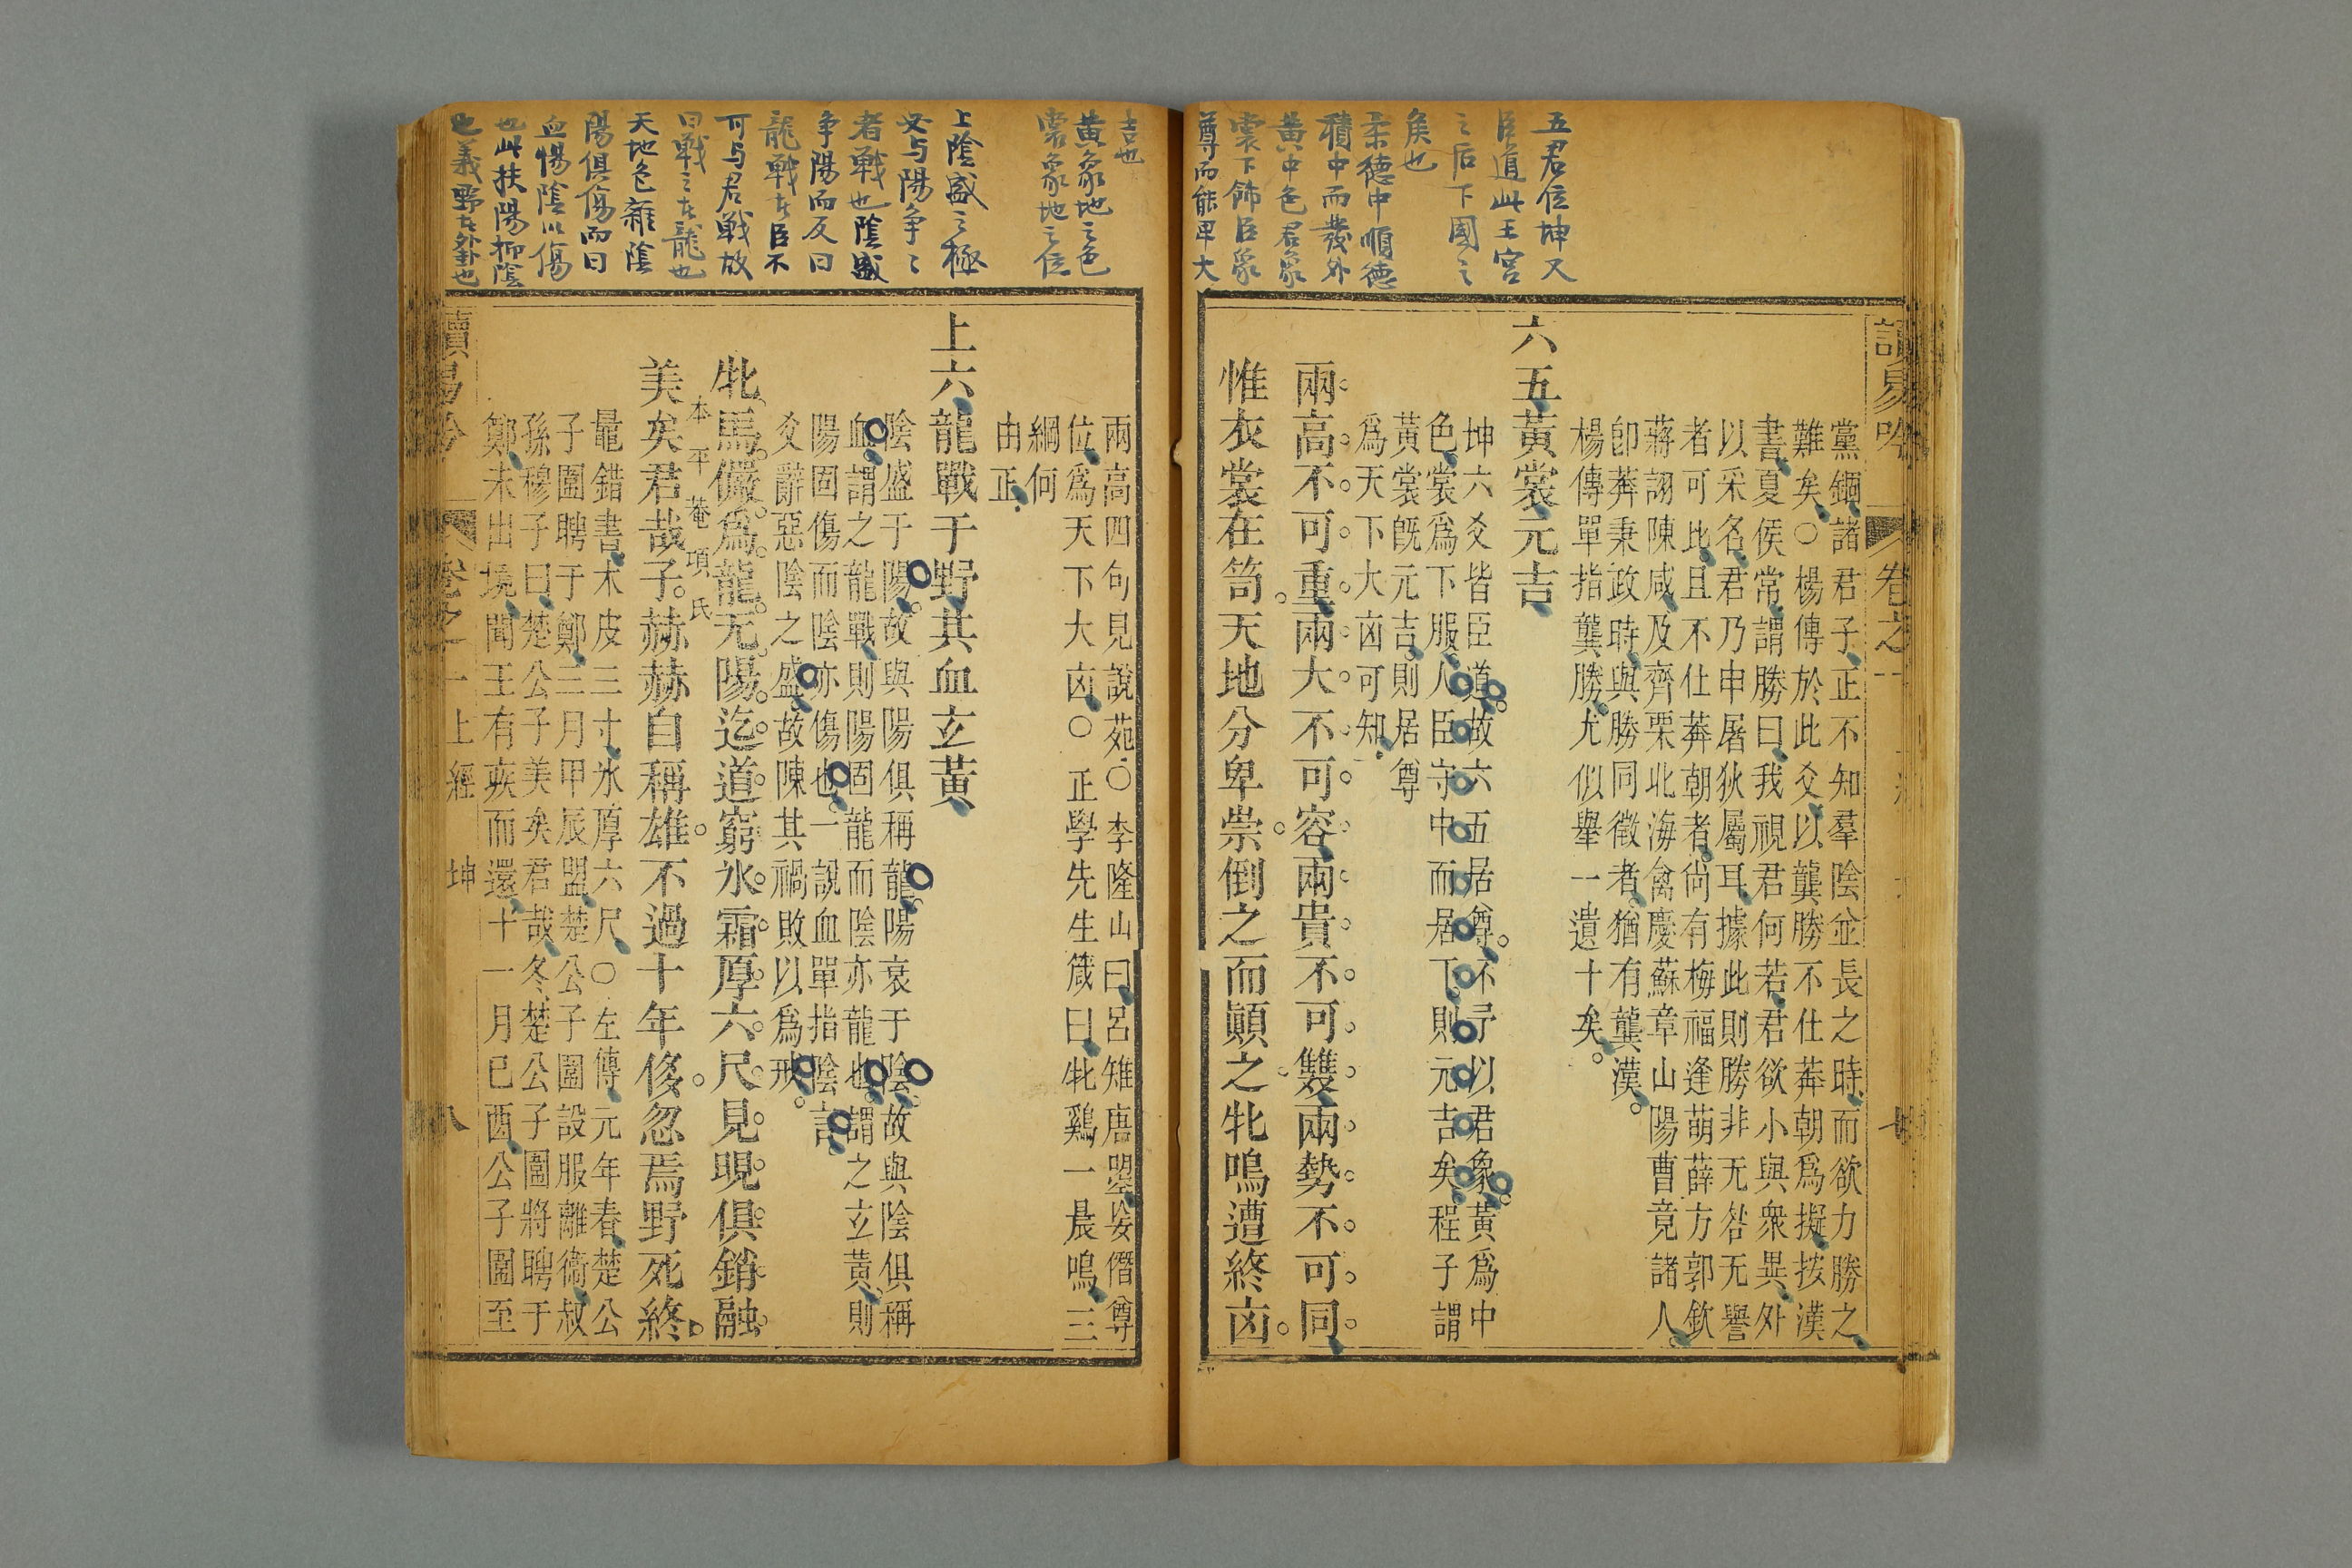 五君位坤又
臣道此王宮
之后下國之
矦也
柔德中順德
積中而發外
黃中色君象
裳下飾臣象
尊而能卑大
讀易吟
卷之一
七
黨錮諸君子正不知羣陰並長之時而欲力勝之
難矣○楊傳於此爻以龔勝不仕莽朝爲擬按漢
書夏侯常謂勝曰我視君何若君欲小與衆異外
以采名君乃申屠狄屬耳據此則勝非无咎无譽
者可比且不仕莽朝者尙有梅福逢萌薛方郭欽
蔣詡陳咸及齊栗北海禽慶蘇章山陽曹竟諸人
卽莽秉政時與勝同徵者猶有龔漢
楊傳單指龔勝尤似舉一遺十矣
六五黃裳元吉
坤六爻皆臣道故六五居尊不予以君象黃爲中
色裳爲下服人臣守中而居下則元吉矣程子謂
黃裳旣元吉則居尊
爲天下大凶可知
兩高不可重兩大不可容兩貴不可雙兩勢不可同
惟衣裳在笥天地分卑崇倒之而顚之牝鳴遭終凶
吉也
黃象地之色
裳象地之位
上陰盛之極
必与陽爭之
者戰也陰盛
爭陽而反曰
龍戰者臣不
可与君戰故
曰戰之者龍也
天地色雜陰
陽俱傷而曰
血惕陰以傷
也此扶陽抑陰
也義野者外卦也
兩高四句見說苑○李隆山曰呂雉唐曌妄僭尊
位爲天下大凶○正學先生箴曰牝鷄一晨鳴三
綱何
由正
上六龍戰于野其血玄黃
陰盛于陽故與陽俱稱龍陽衰于陰故與陰俱稱
血謂之龍戰則陽固龍而陰亦龍也謂之玄黃則
陽固傷而陰亦傷也一說血單指陰言
爻辭惡陰之盛故陳其禍敗以爲戒
牝馬儼爲龍无陽迄道窮氷霜厚六尺見晛俱銷融
本平菴項氏
美矣君哉子赫赫自稱雄不過十年侈忽焉野死終
鼂錯書木皮三寸氷厚六尺○左傳元年春楚公
子圍聘于鄭三月甲辰盟楚公子圍設服離衞叔
孫穆子曰楚公子美矣君哉冬楚公子圍將聘于
鄭未出境聞王有疾而還十一月己酉公子圍至
讀易吟
卷之一上經
坤
八